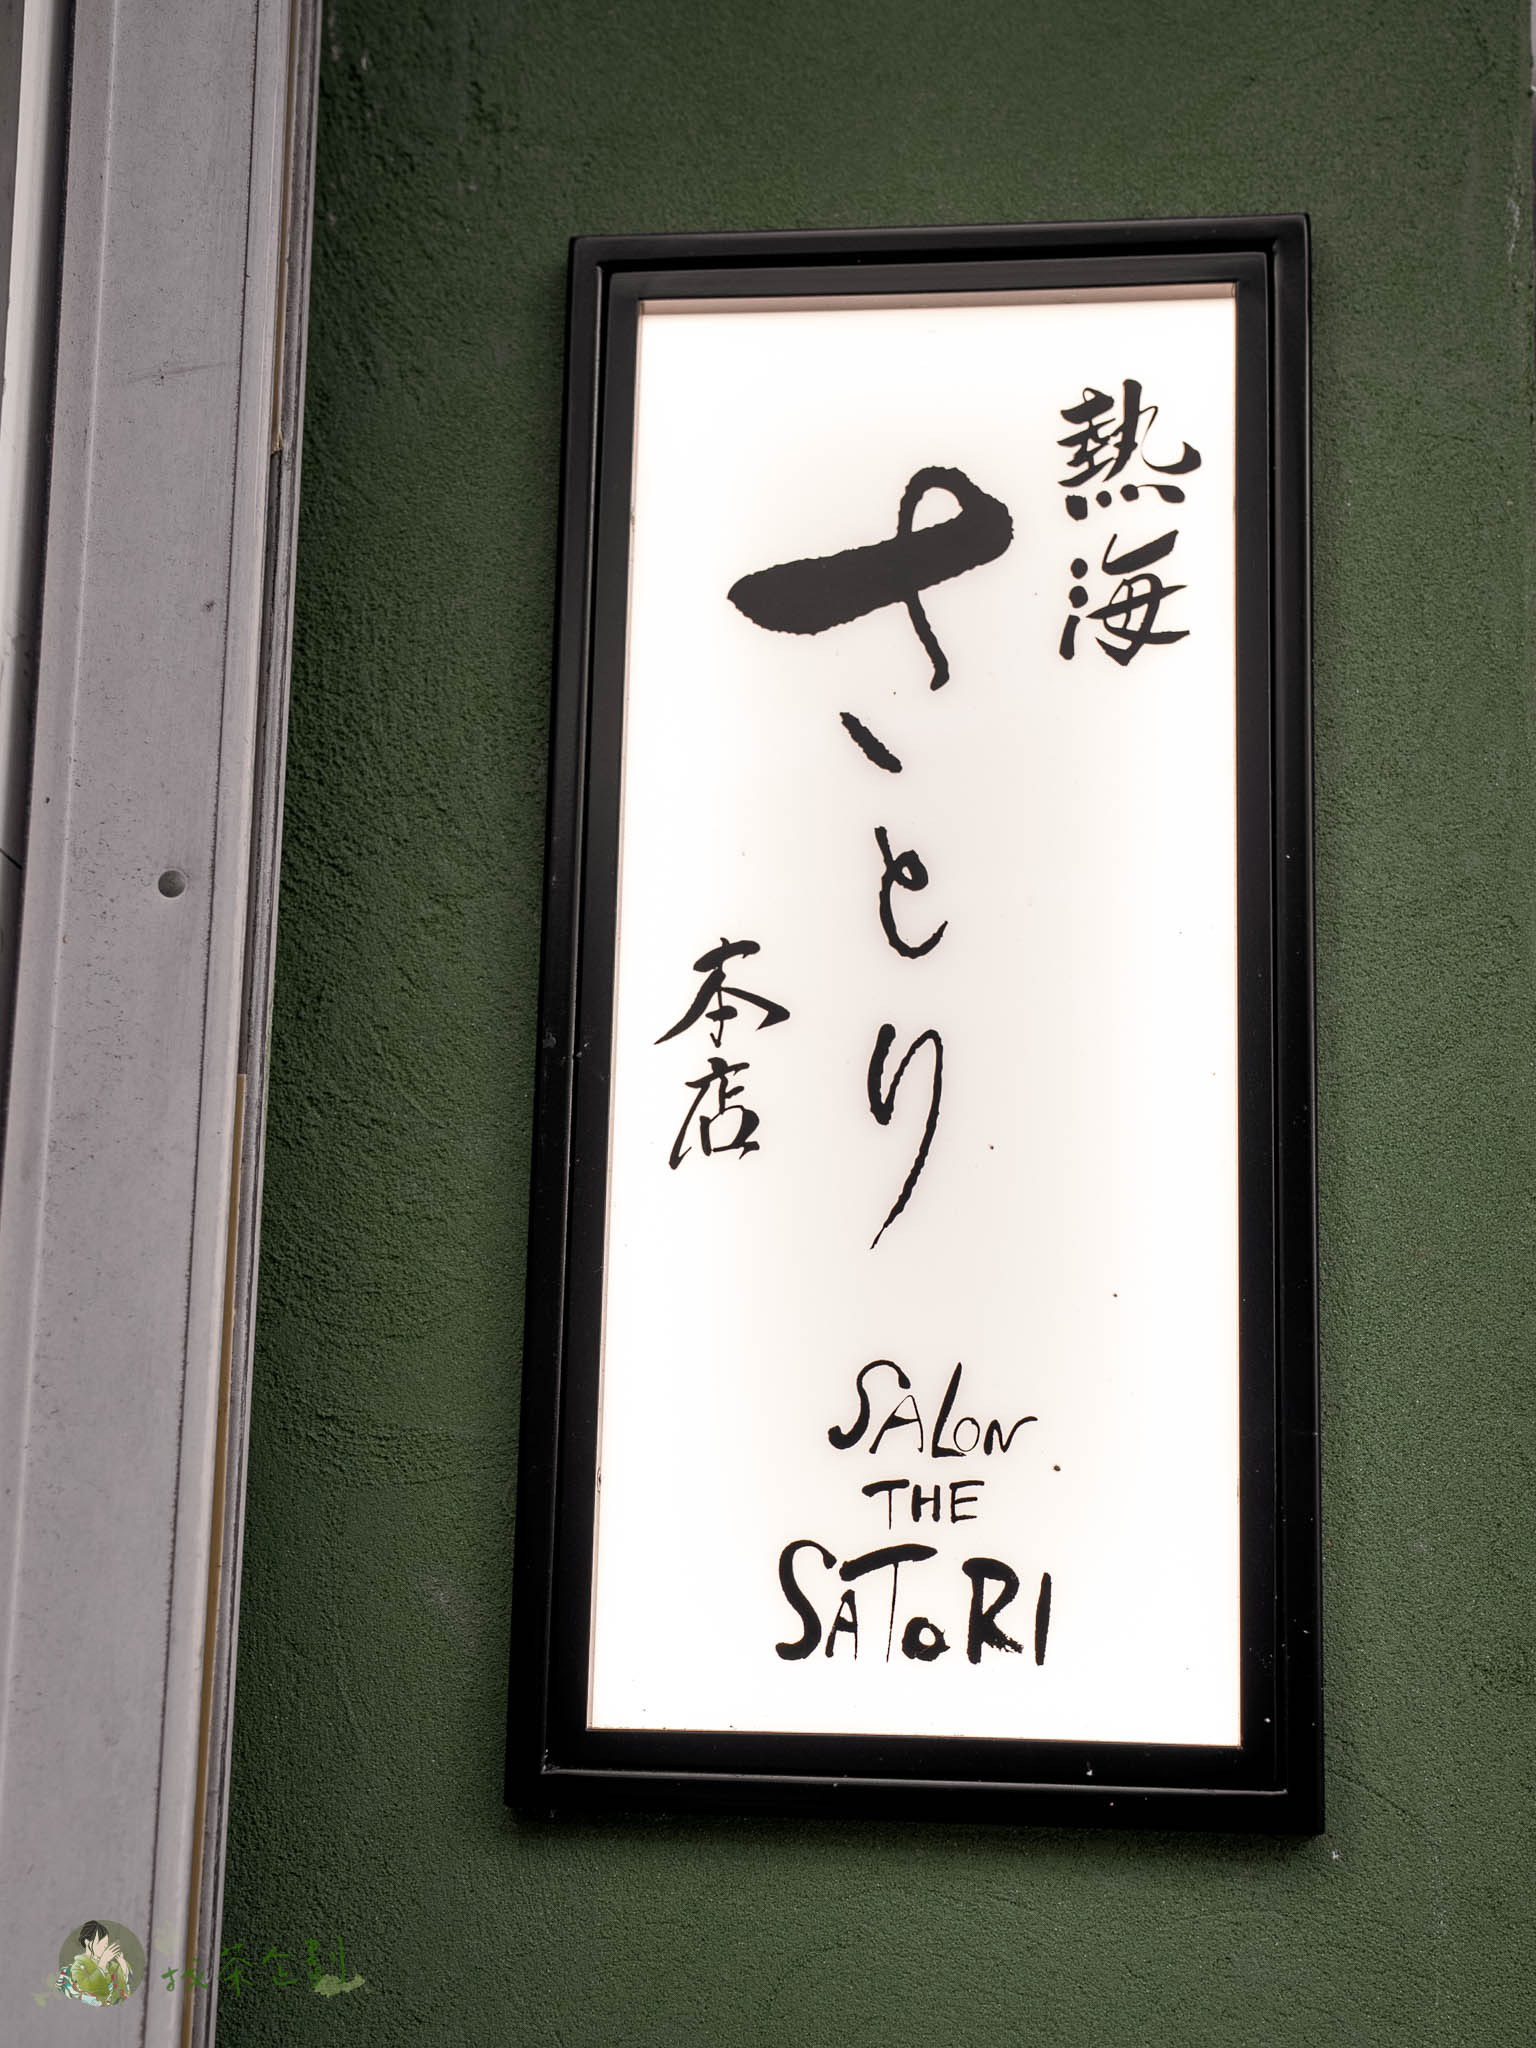 熱海
さとり
本店
SALON
THE
SATORI
抹茶企劃